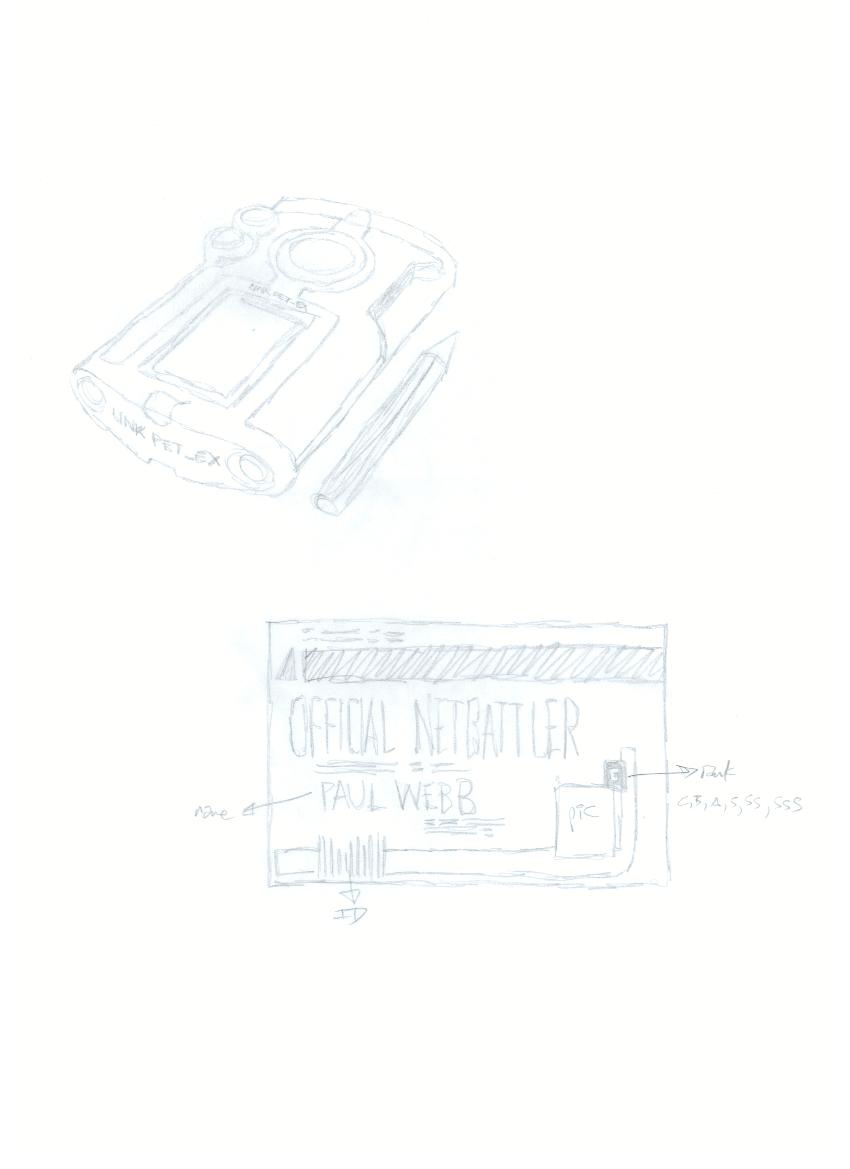 LINK PET_EX
LINK PET_EX
OFFICIAL NETBATTLER
PAUL WEBB
name
pic
E
Rank
C, B, A, S, SS, SSS
ID